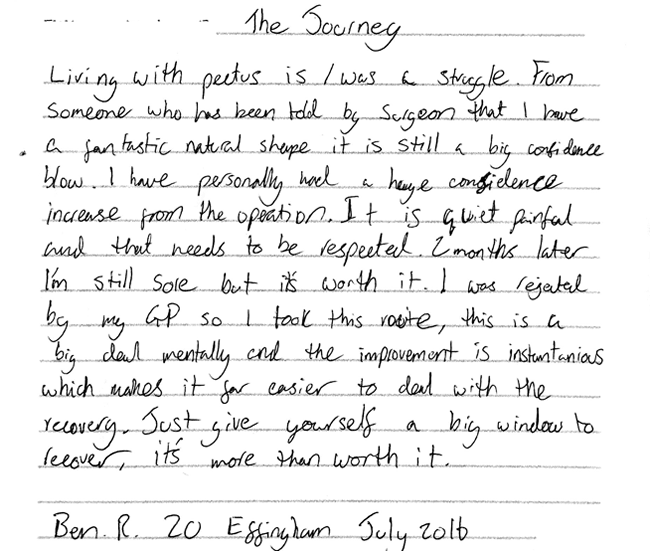 The Journey
Living with pectus is / was a struggle. From
someone who has been told by surgeon that I have
a fantastic natural shape it is still a big confidence
blow. I have personally had a huge confidence
increase from the opeation. It is quiet painful
and that needs to be respected. 2 months later
I'm still sore but it's worth it. I was rejected
by my GP so I took this route, this is a
big deal mentally and the improvement is instantanious
which makes it far easier to deal with the
recovery. Just give yourself a big window to
recover, it's more than worth it.
Ben. R. 20 Effingham July 2016